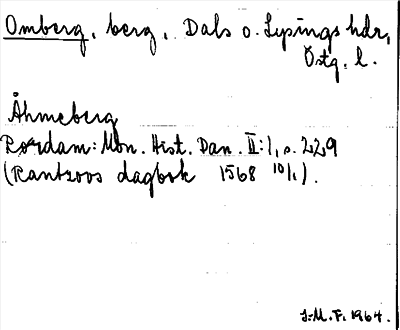 Omberg, berg, Dals o. Lysings hdr,
Östg. l.
Åhmeberg
Rørdam: Mon. Hist. Dan. II:1, s. 229
(Rantzovs dagbok 1568 10/1).
J.M.F. 1964.